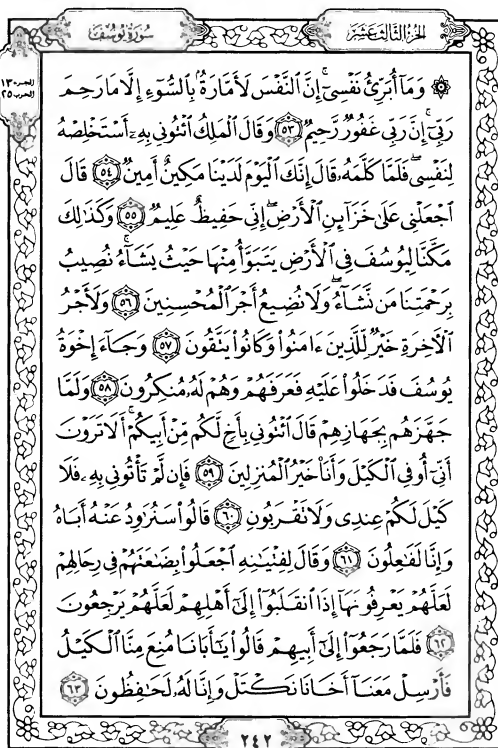 الجزء الثالث عشر
سورة يوسف
الجزء ١٣
الحزب ٢٥
۞ وَمَآ أُبَرِّئُ نَفْسِىٓ ۚ إِنَّ ٱلنَّفْسَ لَأَمَّارَةٌۢ بِٱلسُّوٓءِ إِلَّا مَا رَحِمَ
رَبِّىٓ ۚ إِنَّ رَبِّى غَفُورٌ رَّحِيمٌ ٥٣ وَقَالَ ٱلْمَلِكُ ٱئْتُونِى بِهِۦٓ أَسْتَخْلِصْهُ
لِنَفْسِى ۖ فَلَمَّا كَلَّمَهُۥ قَالَ إِنَّكَ ٱلْيَوْمَ لَدَيْنَا مَكِينٌ أَمِينٌ ٥٤ قَالَ
ٱجْعَلْنِى عَلَىٰ خَزَآئِنِ ٱلْأَرْضِ ۖ إِنِّى حَفِيظٌ عَلِيمٌ ٥٥ وَكَذَٰلِكَ
مَكَّنَّا لِيُوسُفَ فِى ٱلْأَرْضِ يَتَبَوَّأُ مِنْهَا حَيْثُ يَشَآءُ ۚ نُصِيبُ
بِرَحْمَتِنَا مَن نَّشَآءُ ۖ وَلَا نُضِيعُ أَجْرَ ٱلْمُحْسِنِينَ ٥٦ وَلَأَجْرُ
ٱلْءَاخِرَةِ خَيْرٌ لِّلَّذِينَ ءَامَنُوا۟ وَكَانُوا۟ يَتَّقُونَ ٥٧ وَجَآءَ إِخْوَةُ
يُوسُفَ فَدَخَلُوا۟ عَلَيْهِ فَعَرَفَهُمْ وَهُمْ لَهُۥ مُنكِرُونَ ٥٨ وَلَمَّا
جَهَّزَهُم بِجَهَازِهِمْ قَالَ ٱئْتُونِى بِأَخٍ لَّكُم مِّنْ أَبِيكُمْ ۚ أَلَا تَرَوْنَ
أَنِّىٓ أُوفِى ٱلْكَيْلَ وَأَنَا۠ خَيْرُ ٱلْمُنزِلِينَ ٥٩ فَإِن لَّمْ تَأْتُونِى بِهِۦ فَلَا
كَيْلَ لَكُمْ عِندِى وَلَا تَقْرَبُونِ ٦٠ قَالُوا۟ سَنُرَٰوِدُ عَنْهُ أَبَاهُ
وَإِنَّا لَفَٰعِلُونَ ٦١ وَقَالَ لِفِتْيَٰنِهِ ٱجْعَلُوا۟ بِضَٰعَتَهُمْ فِى رِحَالِهِمْ
لَعَلَّهُمْ يَعْرِفُونَهَآ إِذَا ٱنقَلَبُوٓا۟ إِلَىٰٓ أَهْلِهِمْ لَعَلَّهُمْ يَرْجِعُونَ
٦٢ فَلَمَّا رَجَعُوٓا۟ إِلَىٰٓ أَبِيهِمْ قَالُوا۟ يَٰٓأَبَانَا مُنِعَ مِنَّا ٱلْكَيْلُ
فَأَرْسِلْ مَعَنَآ أَخَانَا نَكْتَلْ وَإِنَّا لَهُۥ لَحَٰفِظُونَ ٦٣
٢٤٢